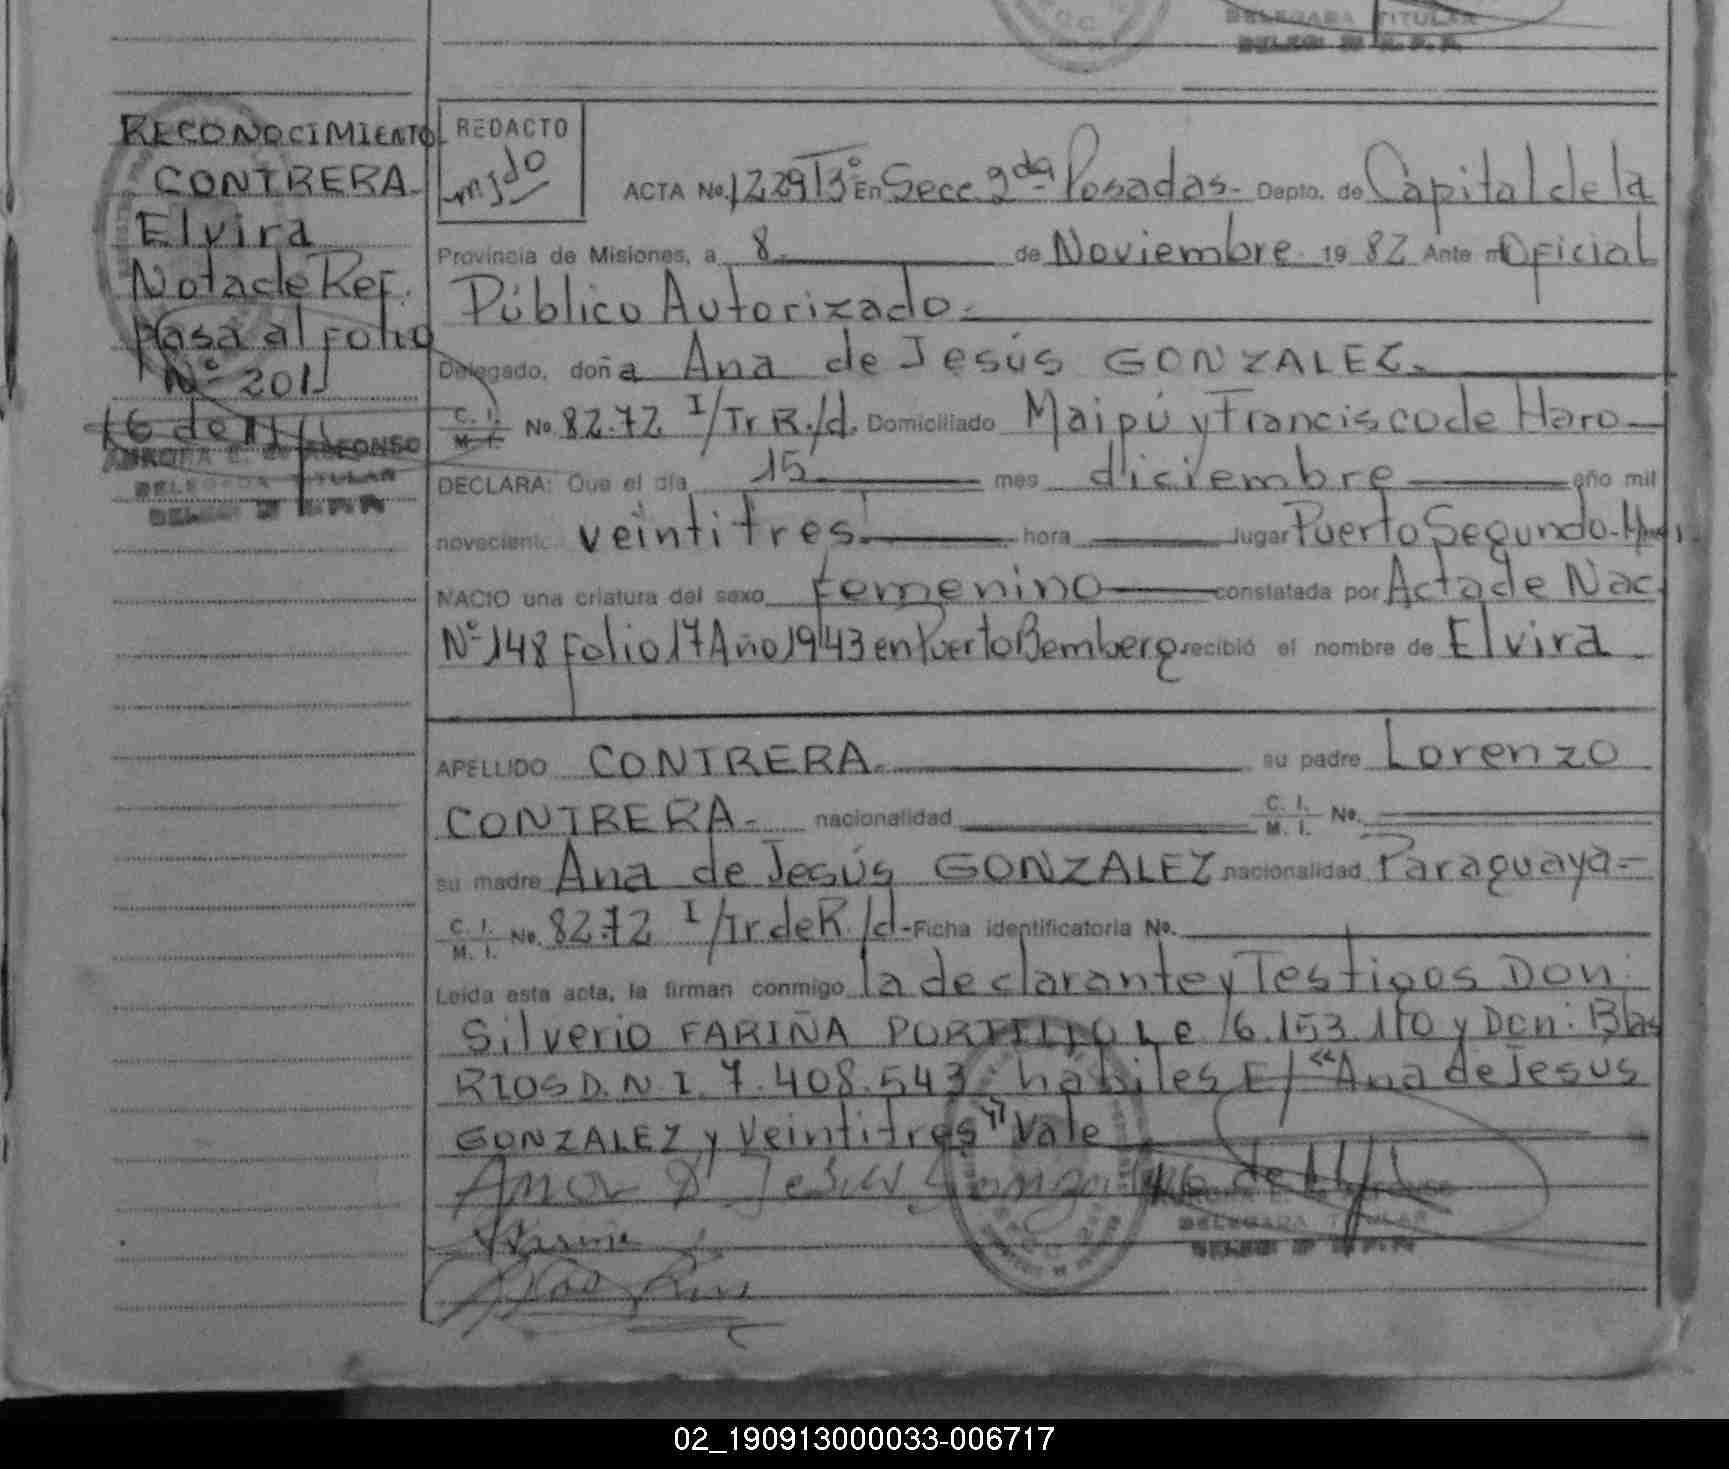 DELEGADA TITULAR
RECONOCIMIENTO
CONTRERA
Elvira
Nota de Ref.
pasa al folio
Nº 201
DELEGADA TITULAR
REDACTO
ACTA No. 1229 Tº 3º En Secc. 2da Posadas- Depto. de Capital de la
Provincia de Misiones, a 8 de Noviembre 19 82 Ante mí Oficial
Público Autorizado.-
Delegado, doña Ana de Jesús GONZALEZ.
C. I. M. I. No. 8272 I/Tr R./d. Domiciliado Maipú y Francisco de Haro
DECLARA: Que el día 15 mes diciembre año mil
novecient. veintitres hora lugar Puerto Segundo-
NACIO una criatura del sexo femenino constatada por Acta de Nac.
Nº 148 folio 17 Año 1943 en Puerto Bemberg recibió el nombre de Elvira
APELLIDO CONTRERA. su padre Lorenzo
CONTRERA- nacionalidad C. I. M. I. No.
su madre Ana de Jesús GONZALEZ nacionalidad Paraguaya-
C. I. M. I. No. 8272 I/Tr de R./d- Ficha identificatoria No.
Leída esta acta, la firman conmigo la declarante y Testigos Don:
Silverio FARIÑA PORTILLO L e 6.153.110 y Don: Blas
RIOS D.N.I. 7.408.543 habiles E/ "Ana de Jesus
GONZALEZ y Veintitres" Vale
DELEGADA TITULAR
02_190913000033-006717